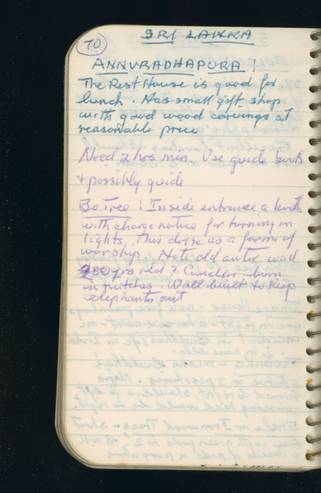 70
SRI LANKA
ANNURADHAPURA!
The Rest House is good for
lunch. Has small gift shop
with good wood carvings at
reasonable price
Need 2 hrs min. Use guide book
& possibly guide
Bo Tree: Inside entrance a
with change notice for turning on
lights, this done as a form of
worship. Note old outer wall
yrs old? Candles burn
in niches. Wall built to keep
elephants out